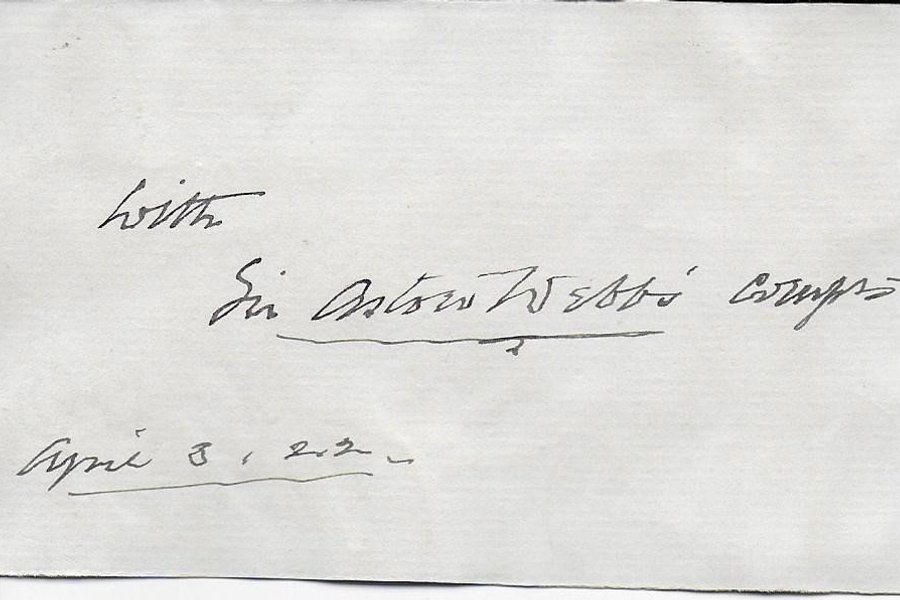 With
Sir Aston Webb's compts
April 3, 22.